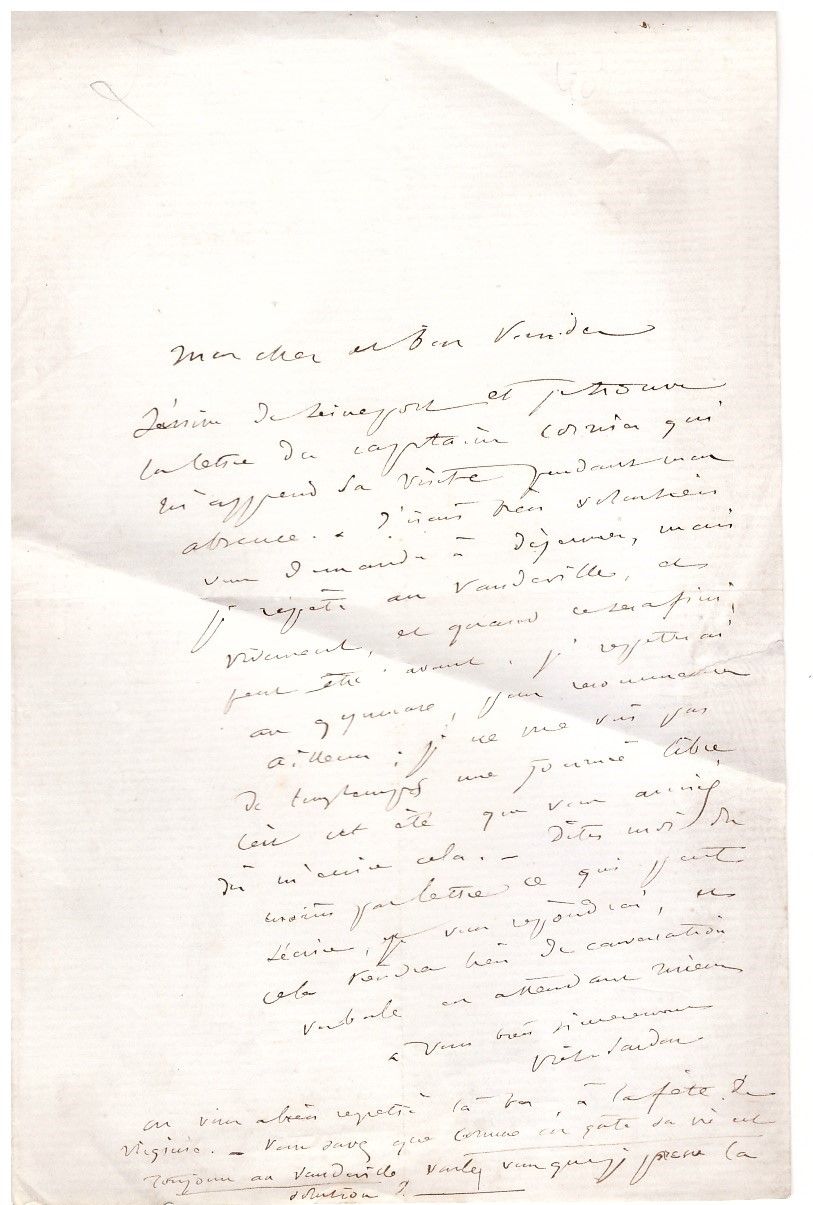 Mon cher et bon
J'arrive de Seineport et je trouve
la lettre du capitaine qui
m'apprend sa visite pendant mon
absence. - J'irais très volontiers
vous demander à déjeuner, mais
je répète au Vaudeville, et
vivement, et quand ce sera fini,
peut être avant. je répèterai
au gymnase, pour recommencer
ailleurs ; je ne me vois pas
de longtemps une journée libre
c'est cet été que vous auriez
dû m'écrire cela. - Dites moi du
moins par lettre ce qui peut
s'écrire, je vous répondrai, et
cela tiendra lieu de conversation
verbale en attendant mieux
à vous bien sincerement
Vict. Sardou
on vous a bien regretté là bas à la fête de
Virginie. - Vous savez que Comme on gâte sa vie est
toujours au Vaudeville, voulez vous que j'y presse la
solution ?